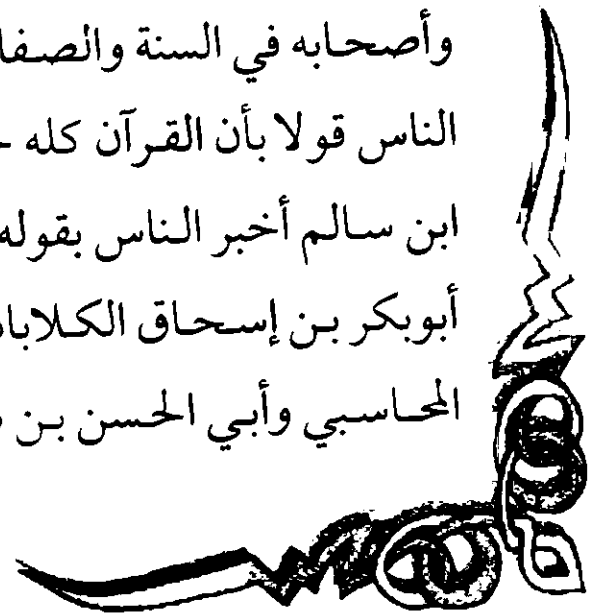 وأصحابه في السنة والصفا
الناس قولا بأن القرآن كله
ابن سالم أخبر الناس بقوله
أبوبكر بن إسحاق الكلاباذ
المحاسبي وأبي الحسن بن